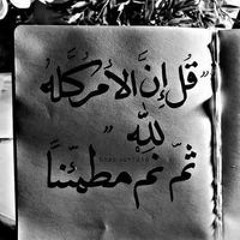 "قُل إِنَّ الأمرَ كلَّهُ
لِلّٰهِ "
ثمّ نم مطمئناً